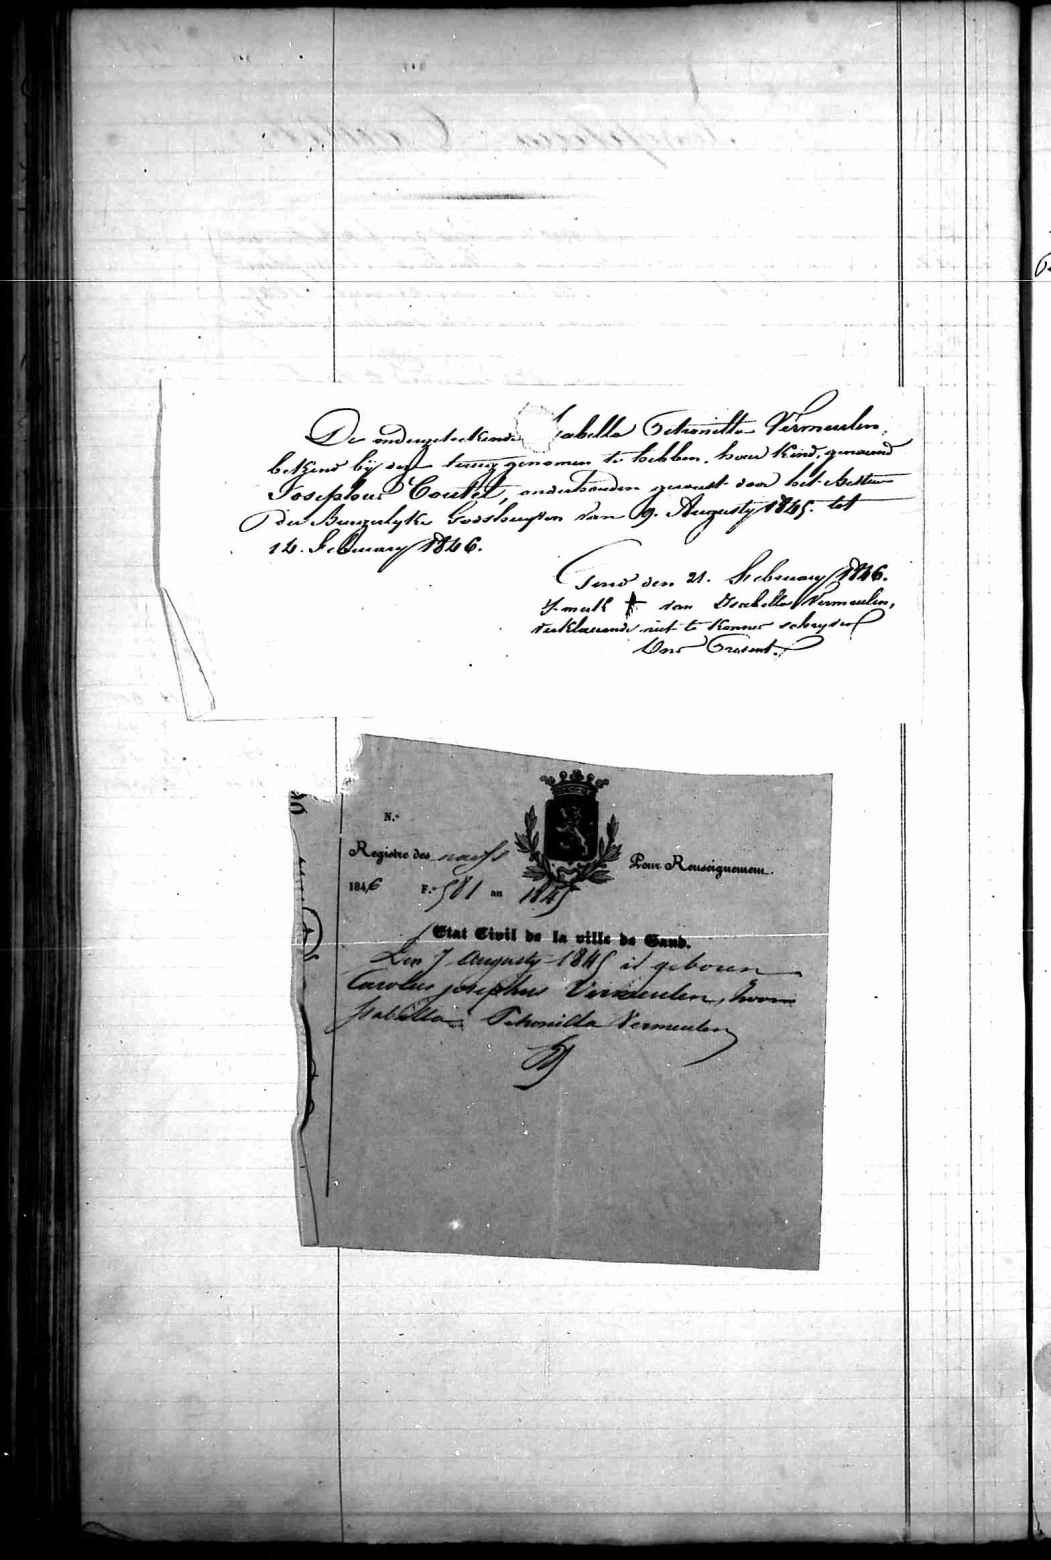 De ondergeteekende Isabella Petronilla Vermeulen,
bekend bij dezen terug genomen te hebben, haar kind, genaamd
Josephus Coutel, onderhouden geweest door het bestuur
der Burgerlyke Godshuyzen van 9. Augusty 1845. tot
14. February 1846.
Gend den 21. February 1846.
T merk + van Isabella Vermeulen,
verklaerende niet te konnen schryven
Ons Present.
N.º
Registre des naiss
Pour Renseignement.
1846 F.º 581 an 1845
Etat Civil de la ville de Gand.
Den 7 Augusty 1845 is geboren
Carolus josephus Vermeulen, zoon
Isabella Petronilla Vermeulen